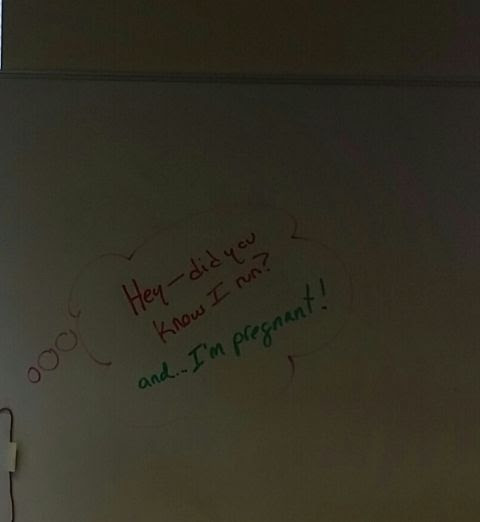 Hey—did you
know I run?
and...I'm pregnant!